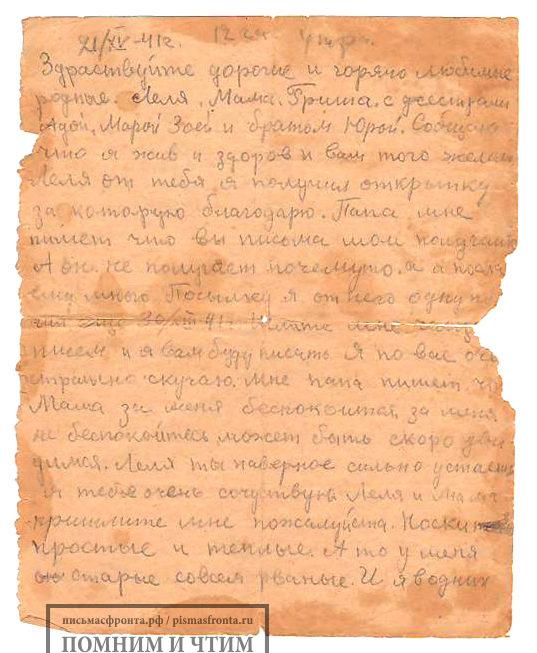 21/XV-41г. 12 час Утра.
Здраствуйте дорогие и горячо любимые
родные. Леля, Мама. Гриша. с сестрами
Адой, Марой Зоей и братом Юрой. Сообщаю
что я жив и здоров и вам того желаю
Леля от тебя я получил открытку
за которую благодарю. Папа мне
пишет что вы письма мои получаете
А он не получает почемуто. а я
ему много. Посылку я от него одну
30/XII-41г. мне
писем и я вам буду писать. Я по вас
скучаю. Мне папа пишет
Мама за меня беспокоится, за меня
не беспокойтесь может быть скоро
димся. Леля ты наверное сильно устаешь
я тебе очень сочувствую Леля и Мама
пришлите мне пожалуйста. Носки
простые и теплые. А то у меня
старые совсем рваные. И я в одних
письмасфронта.рф / pismasfronta.ru
ПОМНИМ И ЧТИМ